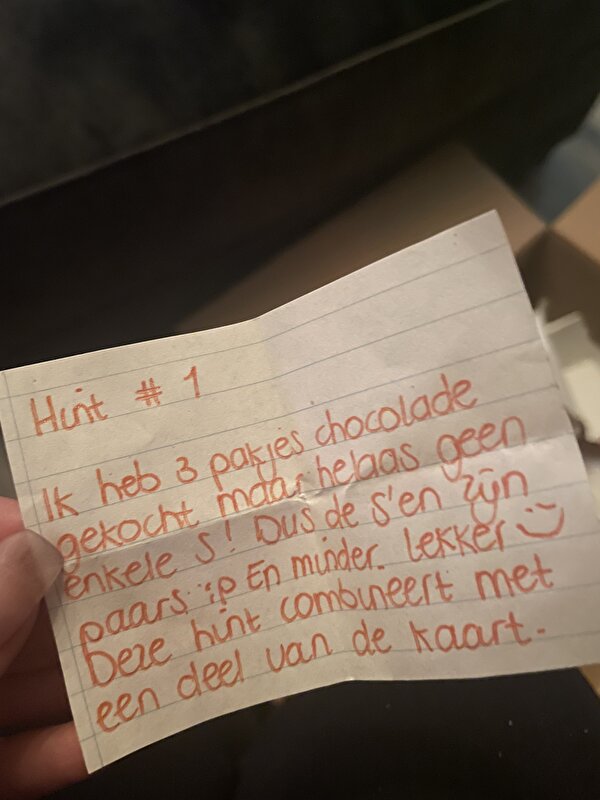 Hint # 1
Ik heb 3 pakjes chocolade
gekocht maar helaas geen
enkele S! Dus de S'en zijn
paars :p En minder lekker :)
Deze hint combineert met
een deel van de kaart.